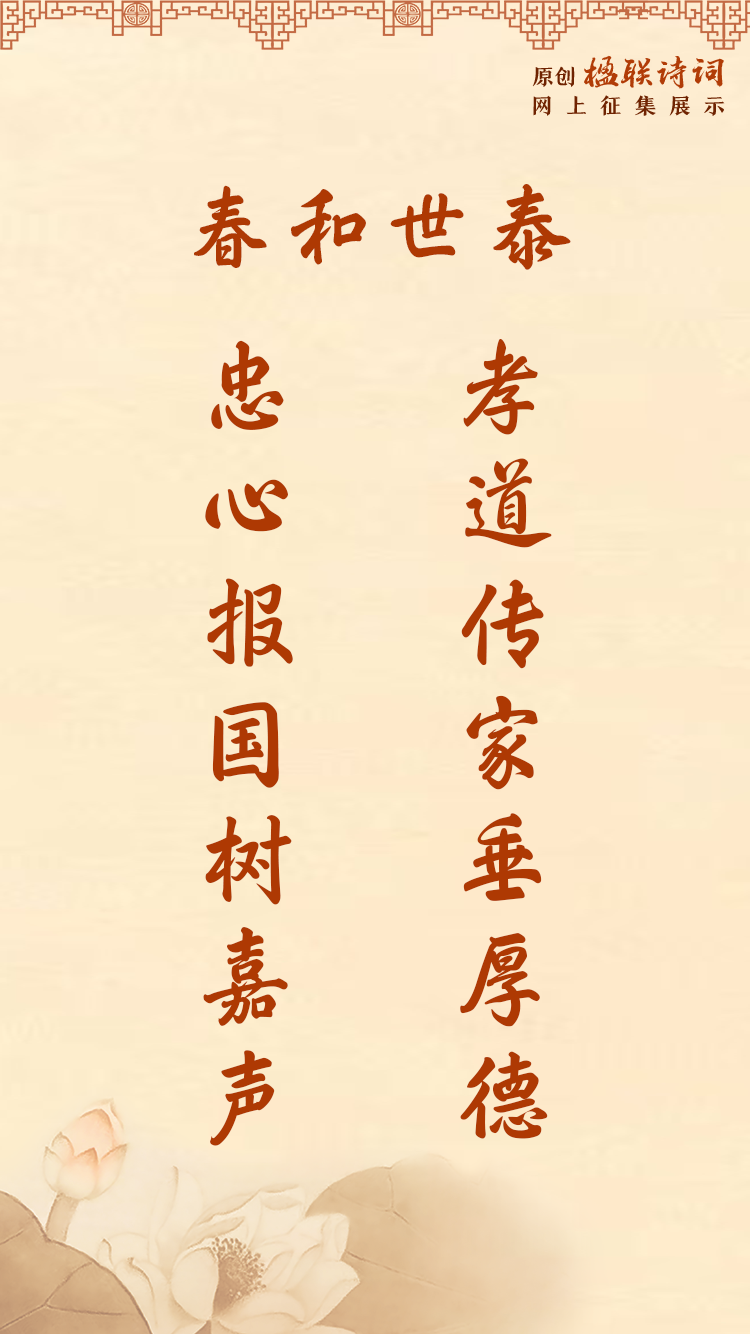 原创 楹联诗词
网上征集展示
春和世泰
孝道传家垂厚德
忠心报国树嘉声